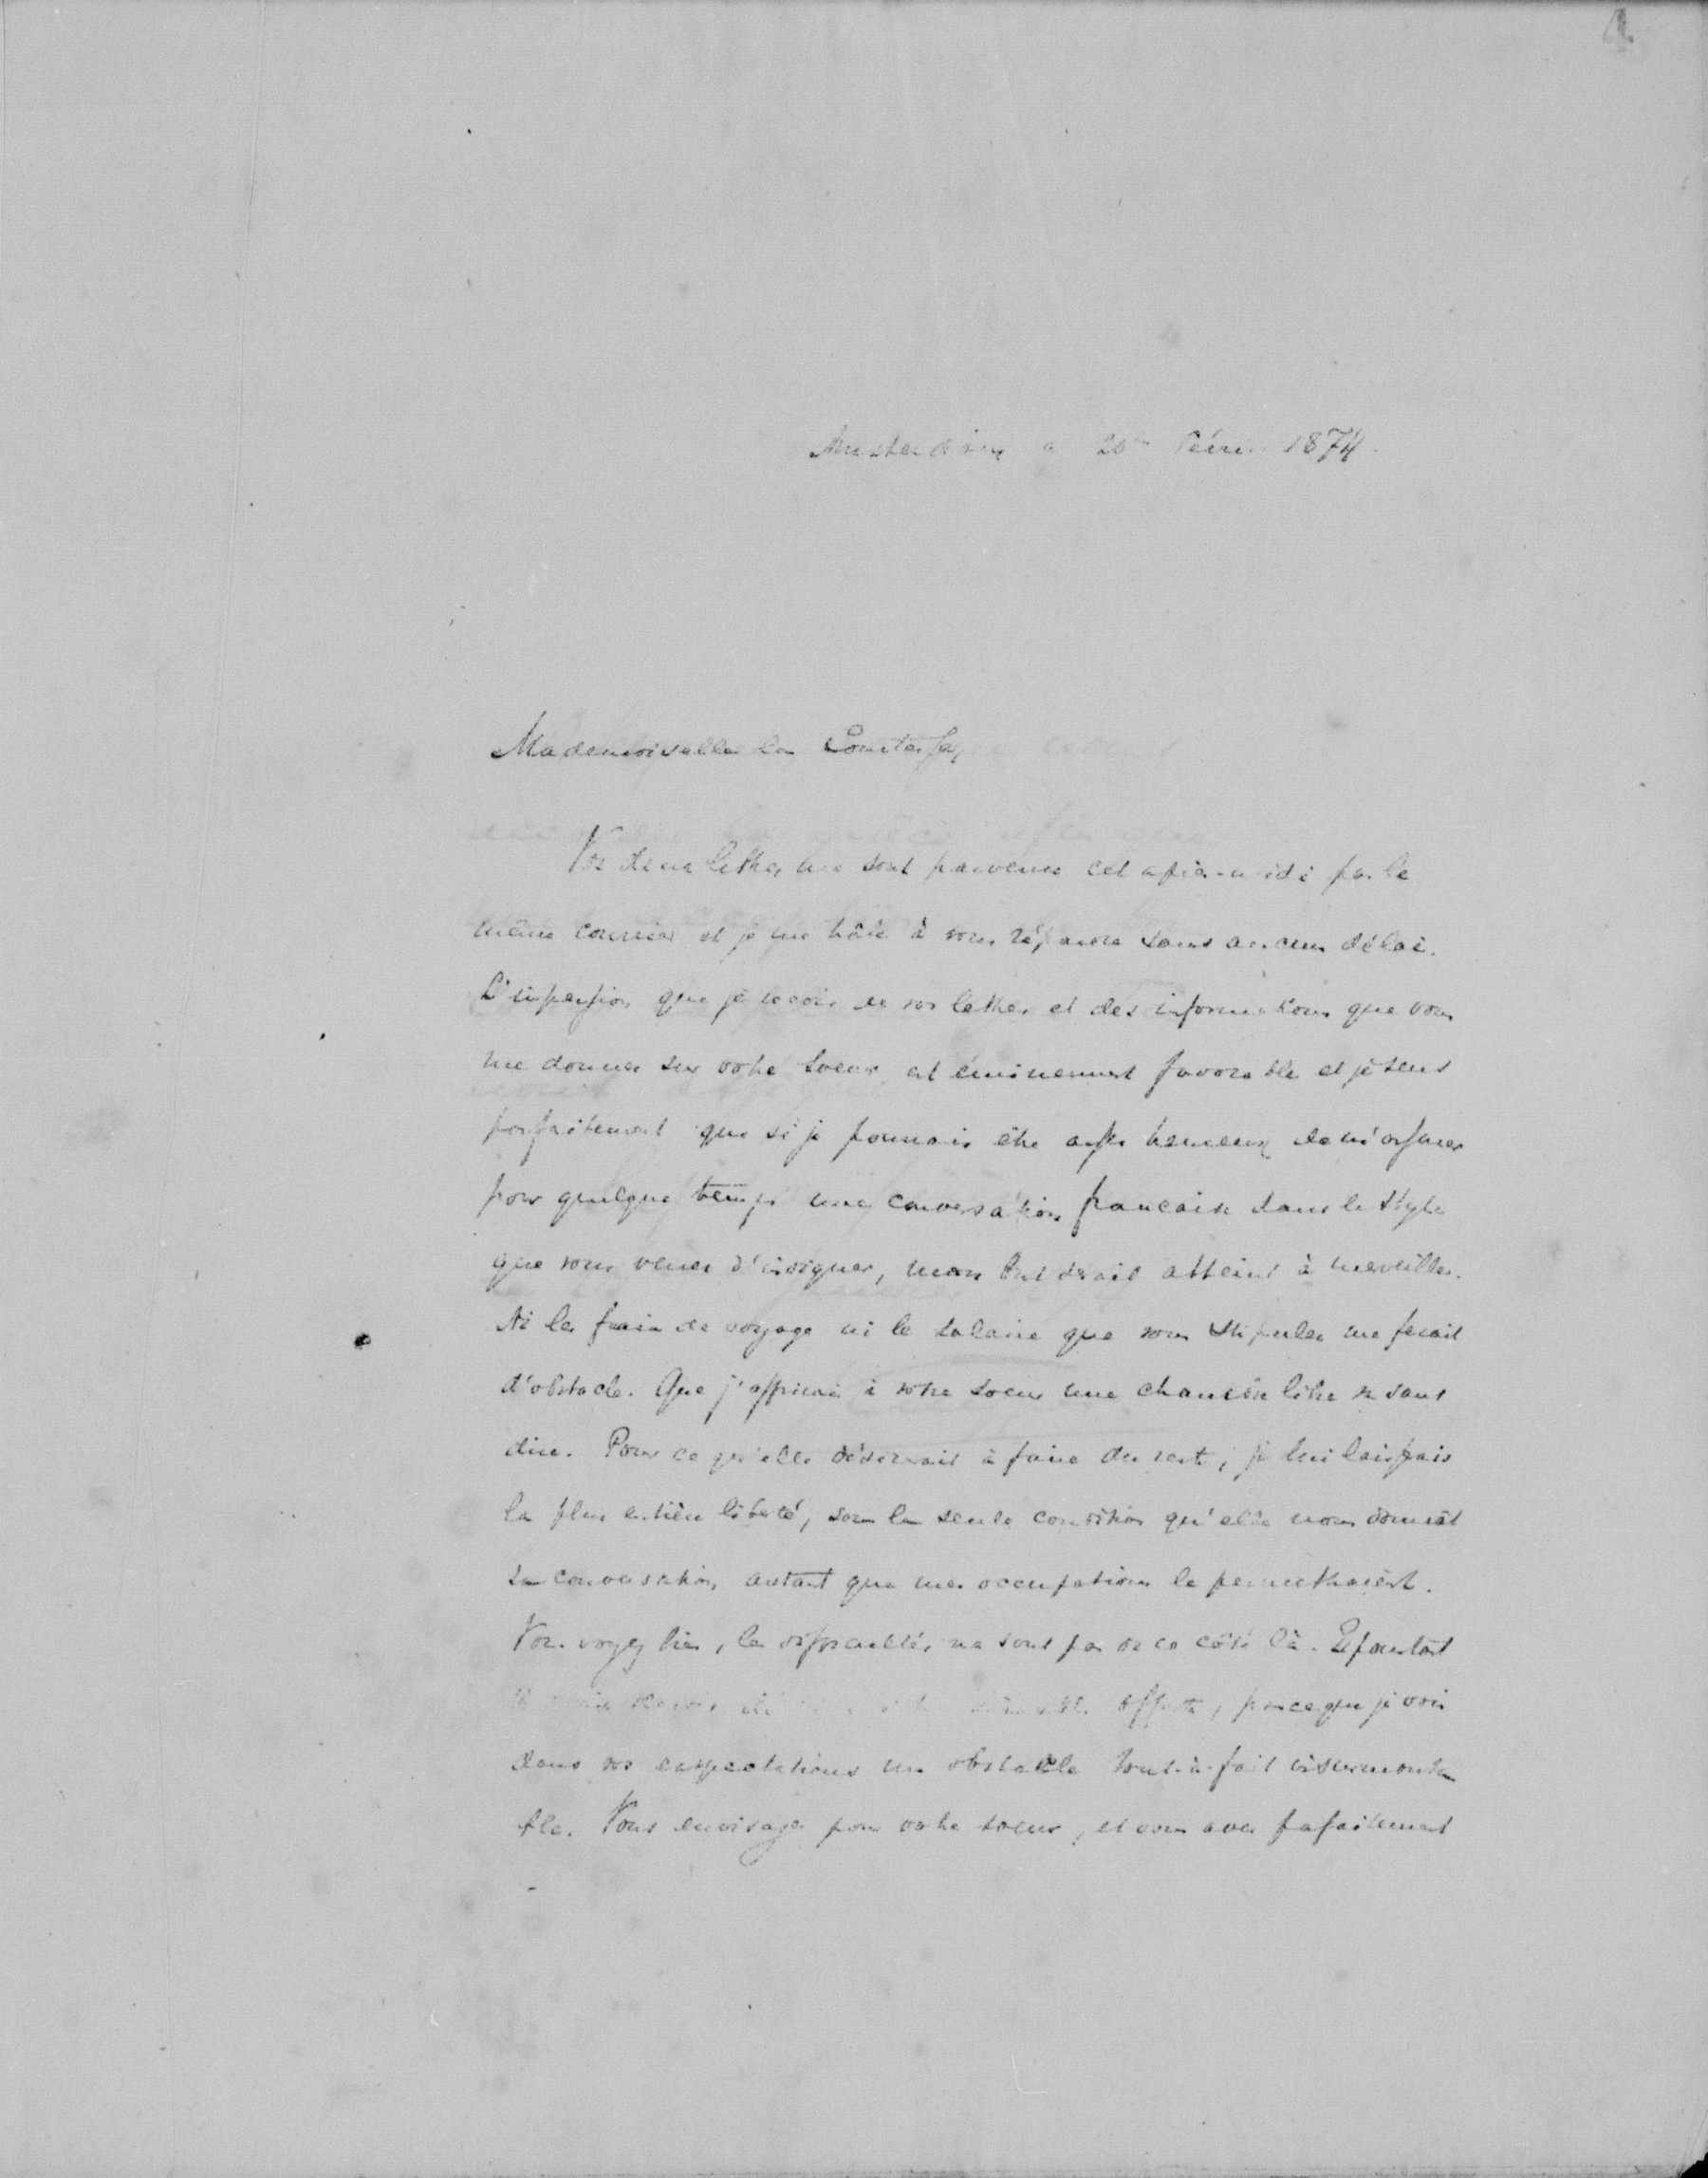 4
Amsterdam 20 Févr. 1874.
Mademoiselle la Comtesse,
Vos deux lettres me sont parvenues cet après-midi par le
même courrier et je me hâte à vous répondre sans aucun délai.
L'impression que je reçois de vos lettres et des informations que vous
me donnez sur votre soeur est éminemment favorable et je sens
parfaitement que si je pouvais être assez heureux de m'assurer
pour quelque temps une conversation française dans le style
que vous venez d'indiquer, mon but serait atteint à merveilles.
Ni les frais de voyage ni le salaire que vous stipulez me ferait
d'obstacle. Que j'offrirai à votre soeur une chambre libre va sans
dire. Pour ce qu'elle désirerait à faire du reste, je lui laissais
la plus entière liberté, sous la seule condition qu'elle nous donnât
sa conversation autant que mes occupations le permettraient.
Vous voyez bien, les difficultés ne sont pas de ce côté là. Et pourtant
offerte, parceque je vois
dans vos expectations un obstacle tout-à-fait insurmonta
ble. Vous envisagez pour votre soeur, et vous avez parfaitement